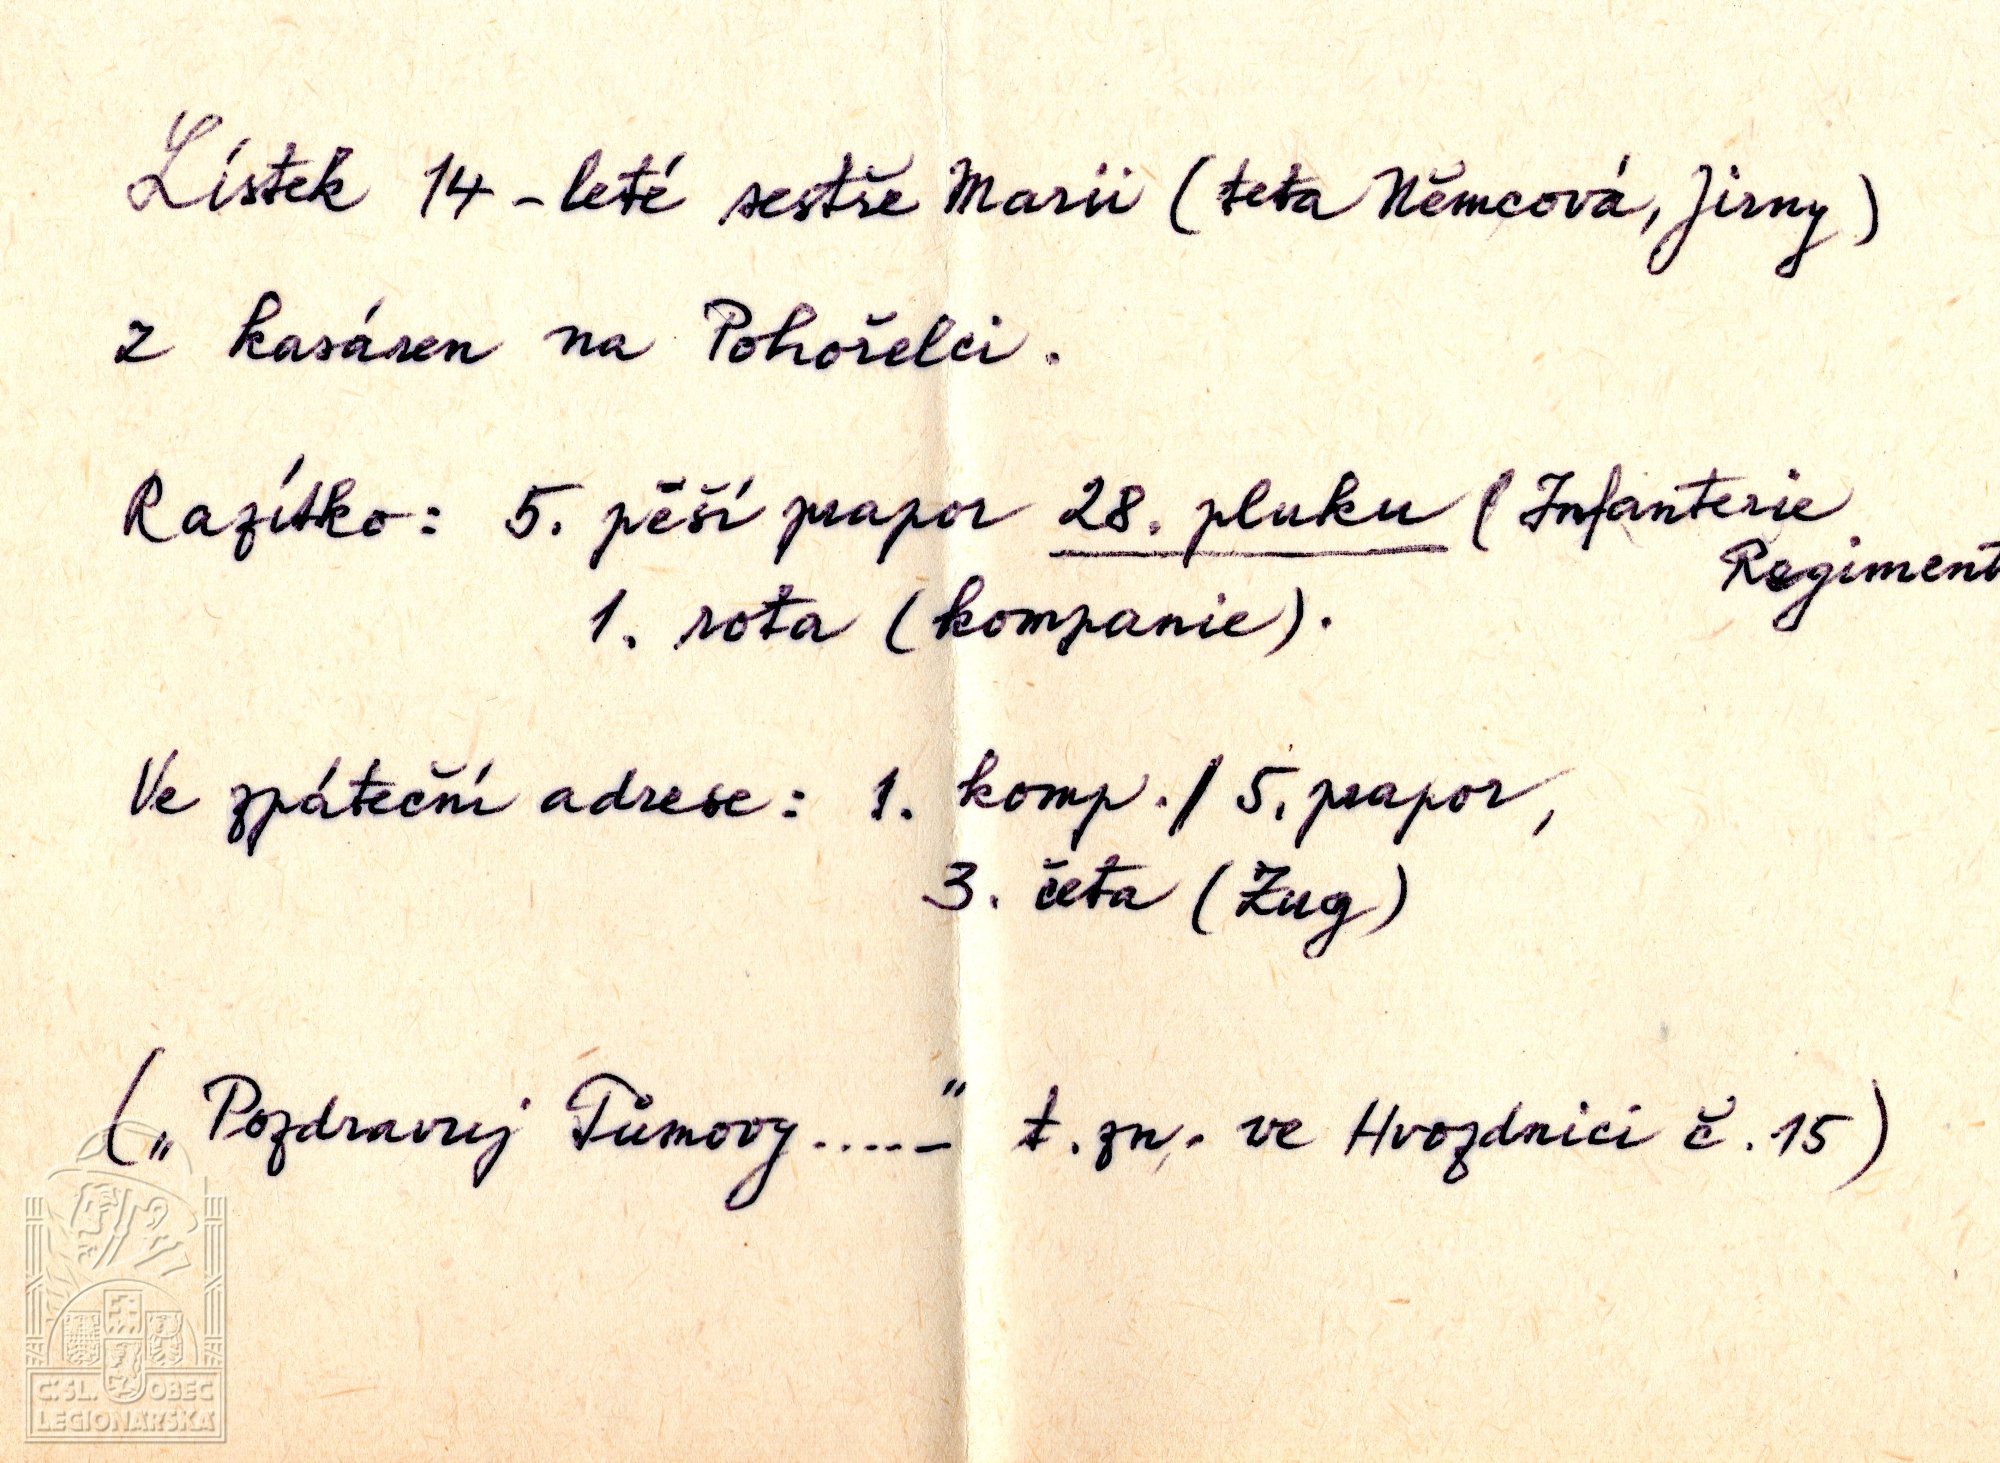 Lístek 14-leté sestře Marii (teta Němcová, Jirny)
z kasáren na Pohořelci.
Razítko: 5. pěší prapor 28. pluku (Infanterie
Regiment
1. rota (kompanie).
Ve zpáteční adrese: 1. komp./5. prapor,
3. četa (Zug)
(„Pozdravuj Tůmovy....." t.zn. ve Hvozdnici č. 15)
Č.SL. OBEC
LEGIONÁŘSKÁ